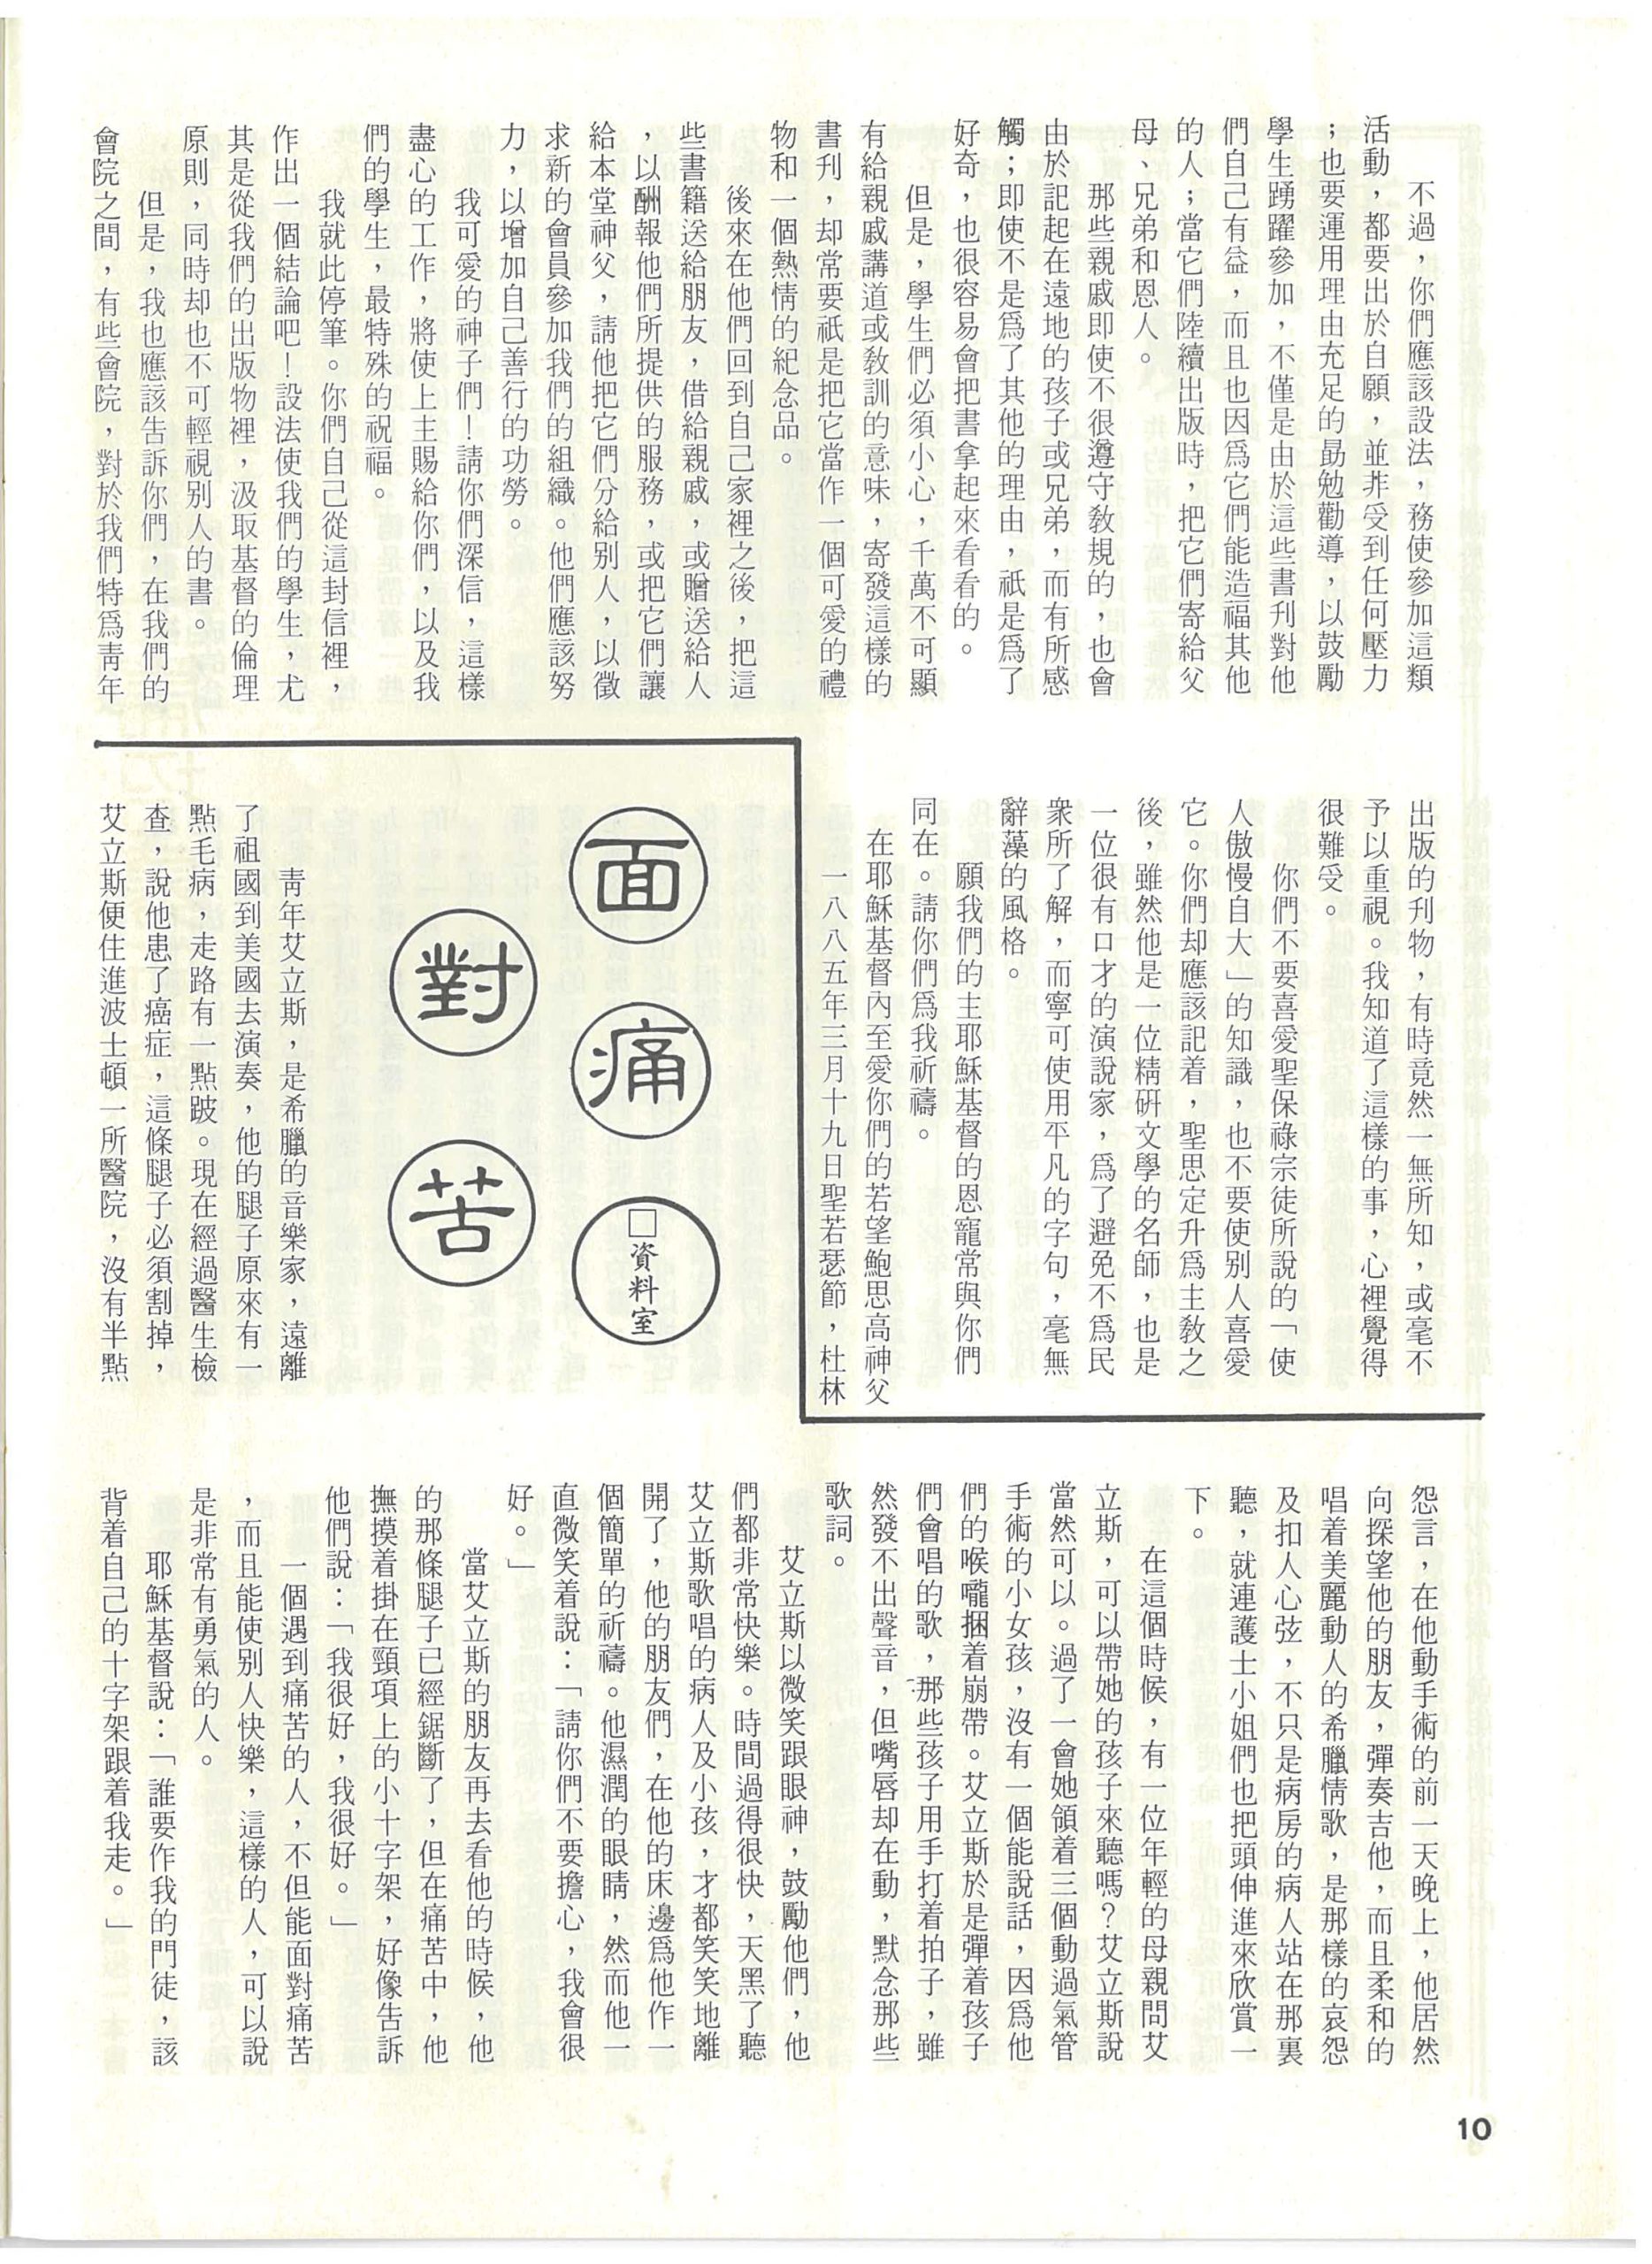 不過，你們應該設法，務使參加這類
活動，都要出於自願，並非受到任何壓力
；也要運用理由充足的勗勉勸導，以鼓勵
學生踴躍參加，不僅是由於這些書刊對他
們自己有益，而且也因爲它們能造福其他
的人；當它們陸續出版時，把它們寄給父
母、兄弟和恩人。
那些親戚即使不很遵守敎規的，也會
由於記起在遠地的孩子或兄弟，而有所感
觸；即使不是爲了其他的理由，祇是爲了
好奇，也很容易會把書拿起來看看的。
但是，學生們必須小心，千萬不可顯
有給親戚講道或敎訓的意味，寄發這樣的
書刊，却常要祇是把它當作一個可愛的禮
物和一個熱情的紀念品。
後來在他們回到自己家裡之後，把這
些書籍送給朋友，借給親戚，或贈送給人
，以酬報他們所提供的服務，或把它們讓
給本堂神父，請他把它們分給別人，以徵
求新的會員參加我們的組織。他們應該努
力，以增加自己善行的功勞。
我可愛的神子們！請你們深信，這樣
盡心的工作，將使上主賜給你們，以及我
們的學生，最特殊的祝福。
我就此停筆。你們自己從這封信裡，
作出一個結論吧！設法使我們的學生，尤
其是從我們的出版物裡，汲取基督的倫理
原則，同時却也不可輕視別人的書。
但是，我也應該告訴你們，在我們的
會院之間，有些會院，對於我們特爲靑年
出版的刊物，有時竟然一無所知，或毫不
予以重視。我知道了這樣的事，心裡覺得
很難受。
你們不要喜愛聖保祿宗徒所說的「使
人傲慢自大」的知識，也不要使別人喜愛
它。你們却應該記着，聖思定升爲主敎之
後，雖然他是一位精硏文學的名師，也是
一位很有口才的演說家，爲了避免不爲民
衆所了解，而寧可使用平凡的字句，毫無
辭藻的風格。
願我們的主耶穌基督的恩寵常與你們
同在。請你們爲我祈禱。
在耶穌基督內至愛你們的若望鮑思高神父
一八八五年三月十九日聖若瑟節，杜林
面
痛
□資料室
對
苦
靑年艾立斯，是希臘的音樂家，遠離
了祖國到美國去演奏，他的腿子原來有一
點毛病，走路有一點跛。現在經過醫生檢
查，說他患了癌症，這條腿子必須割掉，
艾立斯便住進波士頓一所醫院，沒有半點
怨言，在他動手術的前一天晚上，他居然
向探望他的朋友，彈奏吉他，而且柔和的
唱着美麗動人的希臘情歌，是那樣的哀怨
及扣人心弦，不只是病房的病人站在那裏
聽，就連護士小姐們也把頭伸進來欣賞一
下。
在這個時候，有一位年輕的母親問艾
立斯，可以帶她的孩子來聽嗎？艾立斯說
當然可以。過了一會她領着三個動過氣管
手術的小女孩，沒有一個能說話，因爲他
們的喉嚨捆着崩帶。艾立斯於是彈着孩子
們會唱的歌，那些孩子用手打着拍子，雖
然發不出聲音，但嘴唇却在動，默念那些
歌詞。
艾立斯以微笑跟眼神，鼓勵他們，他
們都非常快樂。時間過得很快，天黑了聽
艾立斯歌唱的病人及小孩，才都笑笑地離
開了，他的朋友們，在他的床邊爲他作一
個簡單的祈禱。他濕潤的眼睛，然而他一
直微笑着說：「請你們不要擔心，我會很
好。」
當艾立斯的朋友再去看他的時候，他
的那條腿子已經鋸斷了，但在痛苦中，他
撫摸着掛在頸項上的小十字架，好像告訴
他們說：「我很好，我很好。」
一個遇到痛苦的人，不但能面對痛苦
，而且能使別人快樂，這樣的人，可以說
是非常有勇氣的人。
耶穌基督說：「誰要作我的門徒，該
背着自己的十字架跟着我走。」
10